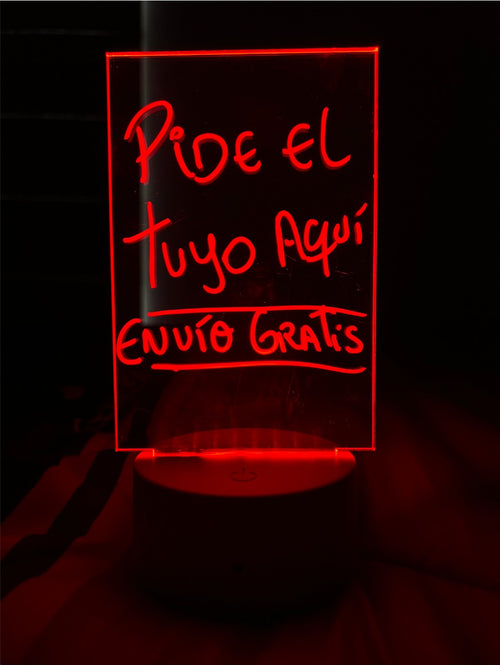 PiDE EL
tuyo AQUÍ
ENVÍO GRATIS